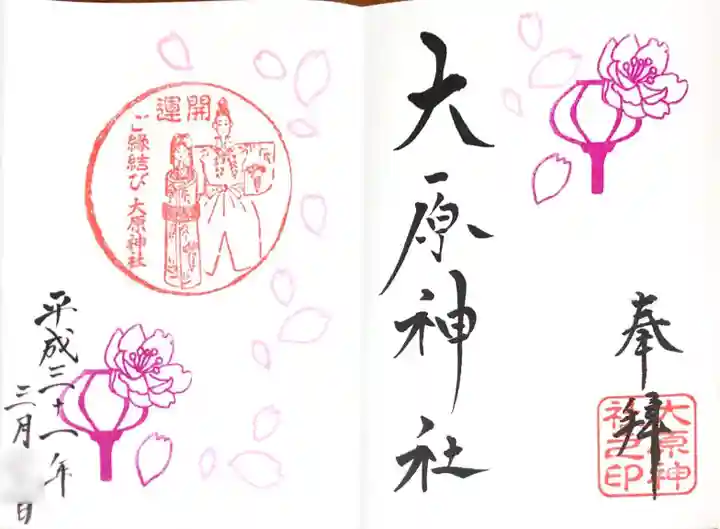 奉拝
大原神
社之印
大原神社
開運
ご縁結び 大原神社
平成三十一年
三月 日